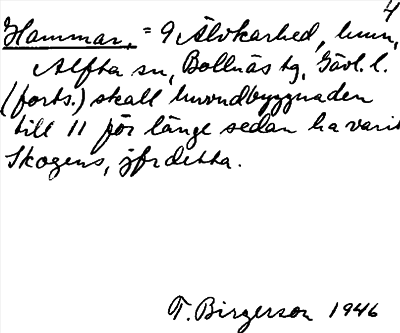 4
Hammar, = 9 Älvkarhed, hmn,
Alfta sn, Bollnäs tg, Gävl. l.
(forts.) skall huvudbyggnaden
till 11 för länge sedan ha varit
Skogens, jfr detta.
T. Birgerson 1946